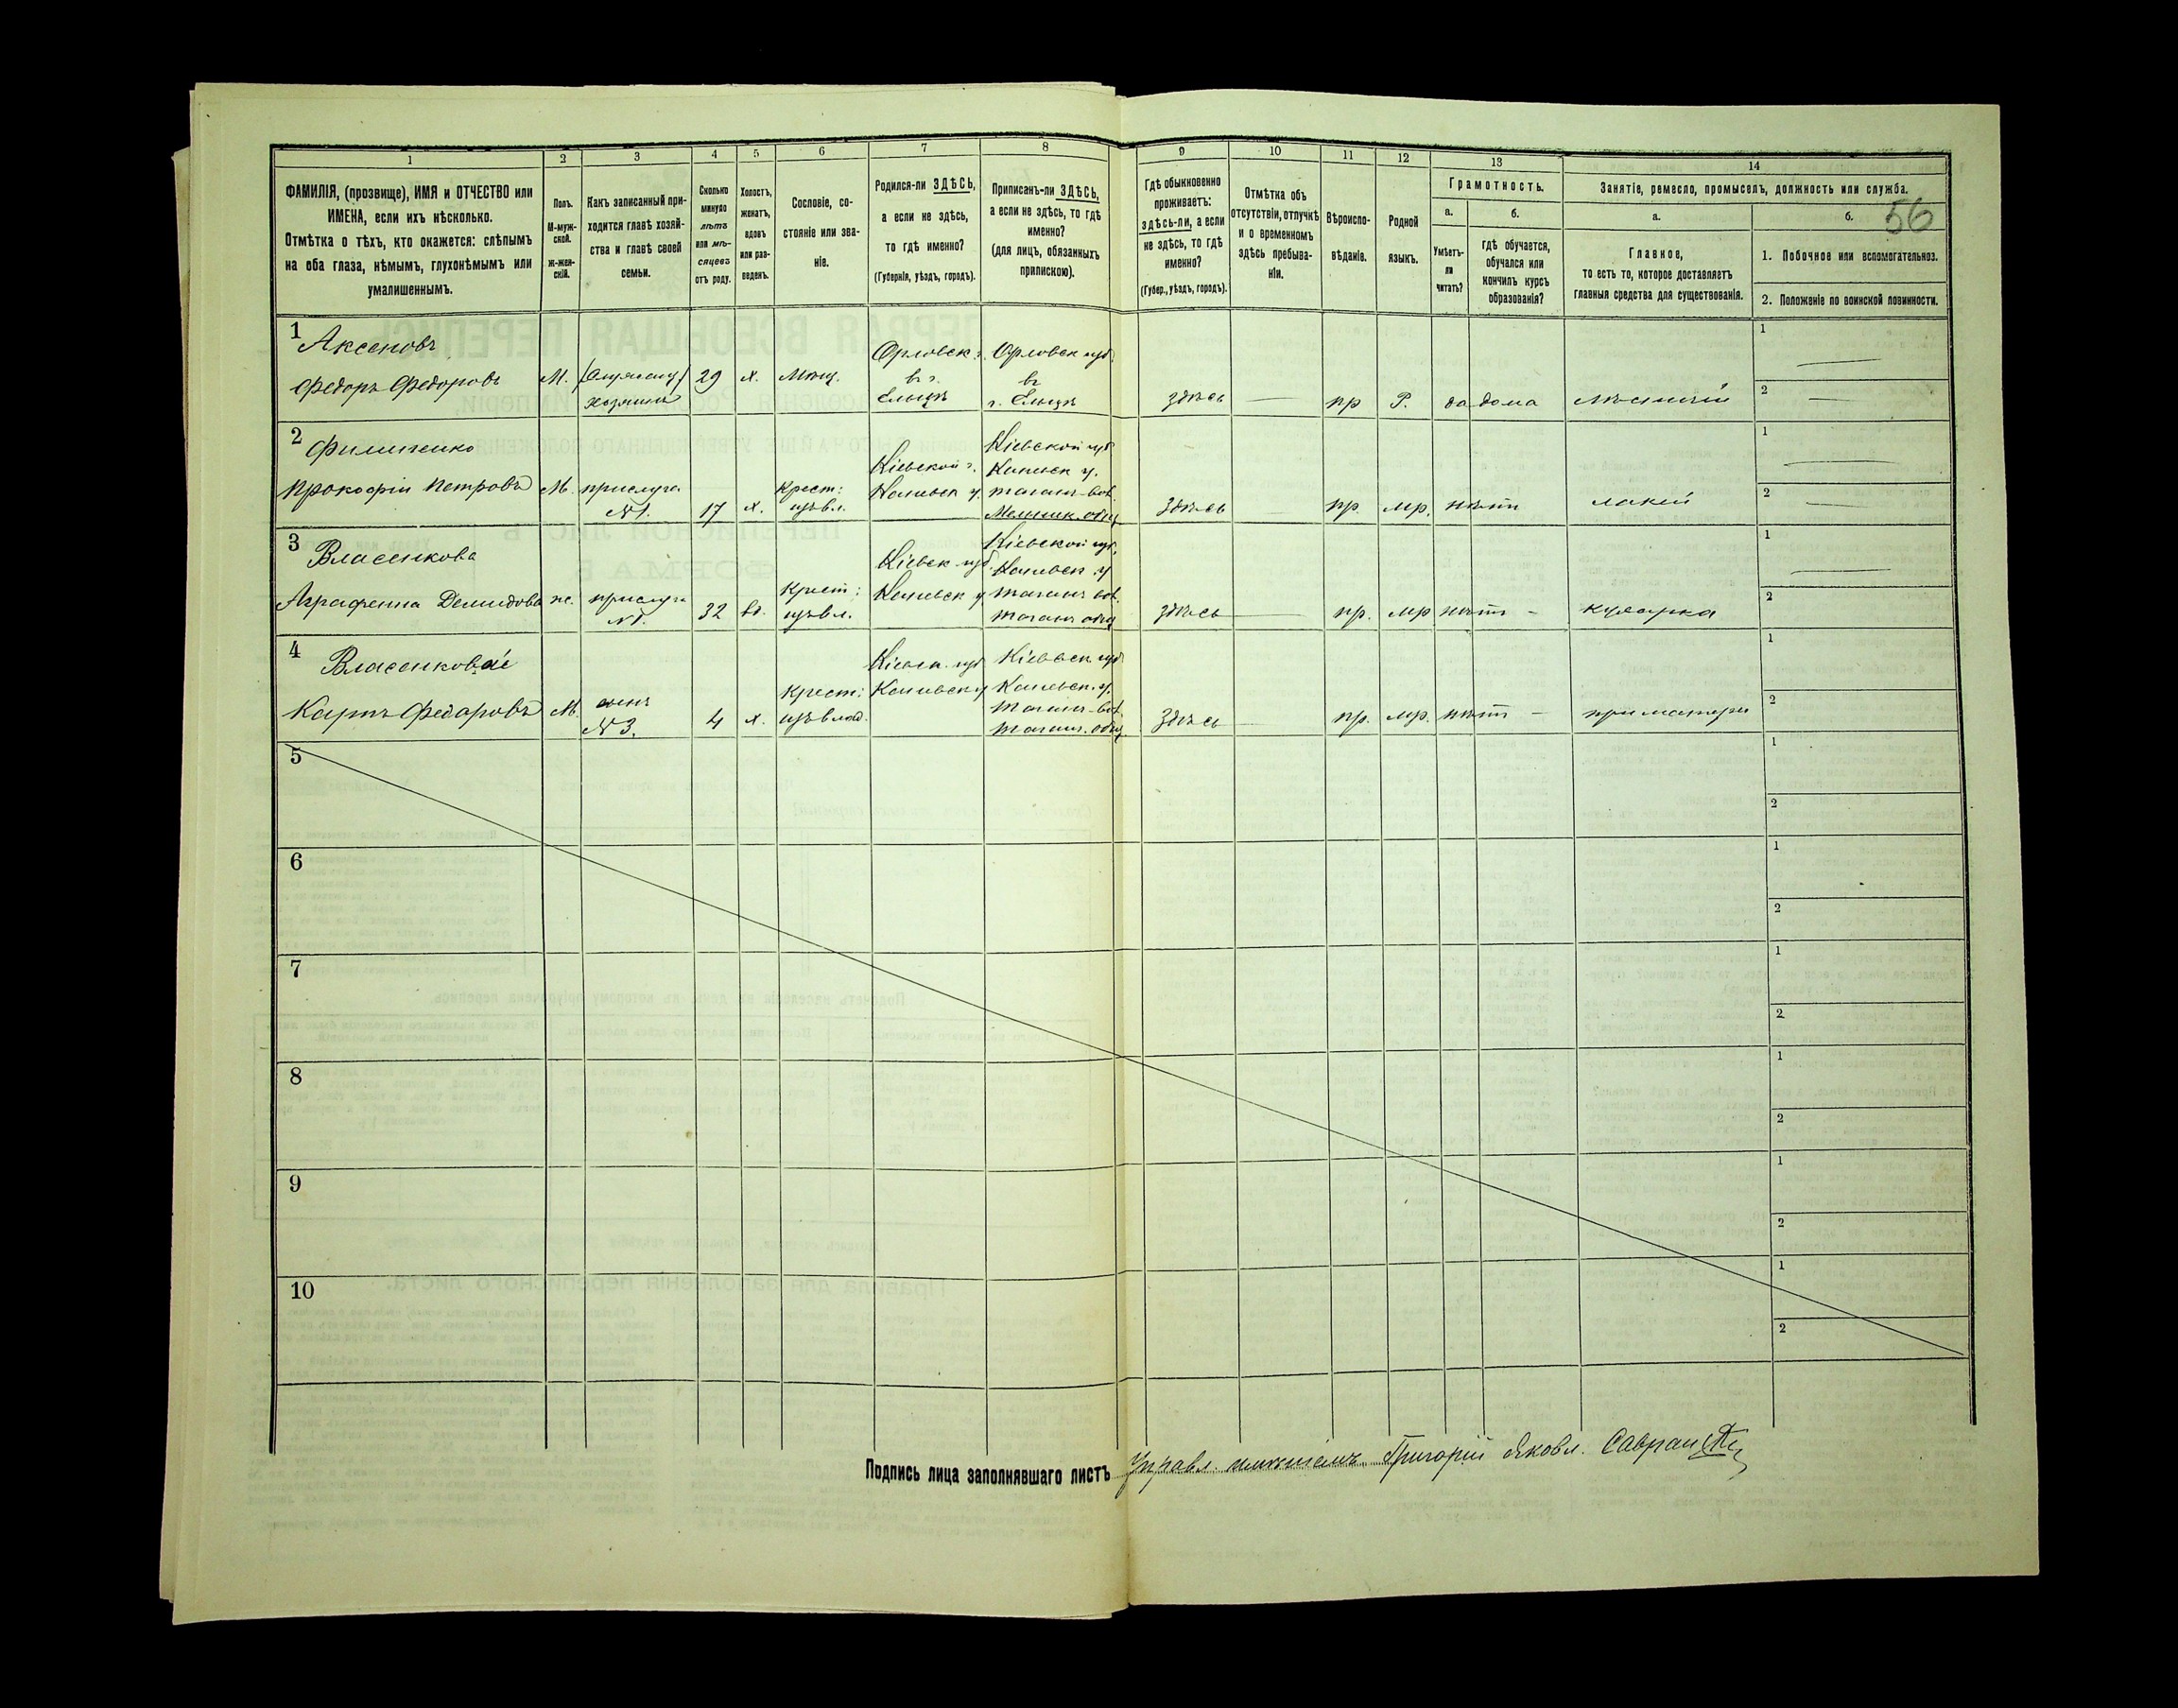 1 2 3 4 5 6 7 8 9 10 11 12 13 14
ФАМИЛІЯ, (прозвище), ИМЯ и ОТЧЕСТВО или
ИМЕНА, если ихъ нѣсколько.
Отмѣтка о тѣхъ, кто окажется: слѣпымъ
на оба глаза, нѣмымъ, глухонѣмымъ или
умалишеннымъ.
Полъ.
М-муж-
ской.
Ж-жен-
скій.
Какъ записанный при-
ходится главѣ хозяй-
ства и главѣ своей
семьи.
Сколько
минуло
лѣтъ
или мѣ-
сяцевъ
отъ роду.
Холостъ,
женатъ,
вдовъ
или раз-
веденъ.
Сословіе, со-
стояніе или зва-
ніе.
Родился-ли ЗДѢСЬ,
а если не здѣсь,
то гдѣ именно?
(Губернія, уѣздъ, городъ).
Приписанъ-ли ЗДѢСЬ,
а если не здѣсь, то гдѣ
именно?
(для лицъ, обязанныхъ
припискою).
Гдѣ обыкновенно
проживаетъ:
здѣсь-ли, а если
не здѣсь, то гдѣ
именно?
(Губер., уѣздъ, городъ).
Отмѣтка объ
отсутствіи, отлучкѣ
и о временномъ
здѣсь пребыва-
ніи.
Вѣроиспо-
вѣданіе.
Родной
языкъ.
Грамотность.
а.
Умѣетъ-
ли
читать?
б.
гдѣ обучается,
обучался или
кончилъ курсъ
образованія?
Занятіе, ремесло, промыселъ, должность или служба.
а.
Главное,
то есть то, которое доставляетъ
главныя средства для существованія.
б.
56
1. Побочное или вспомогательное.
2. Положеніе по воинской повинности.
1
Аксеновъ
Федоръ Федоровъ
М.
хозяинъ
29
х.
мѣщ.
Орловск. г.
въ г.
Ельцѣ
Орловск губ.
въ
г. Ельцѣ
здѣсь
—
пр
Р.
да
дома
лѣсничій
1 —
2 —
2
Филипенко
Прокофій Петровъ
М.
прислуга
№1.
17
х.
крест:
изъ вл.
Кіевской г.
Каневск у.
Кіевской губ
Каневск у.
таган. вол.
здѣсь
—
пр.
мр.
нѣтъ
лакей
1 —
2 —
3
Власенкова
Аграфенна Демидова
ж.
прислуга
№1.
32
вд.
крест:
изъ вл.
Кіевск губ.
Каневск у
Кіевской губ.
Каневск. у
таган. вол.
таган. общ
здѣсь
—
пр.
мр
нѣтъ
—
кухарка
1 —
2
4
Карпъ Федоровъ
М.
сынъ
№3.
4
х.
крест:
изъ влад.
Кіевск. губ
Каневск у
Кіевск губ
Каневск. у.
таган. вол.
таган. общ
здѣсь
—
пр.
мр.
нѣтъ
—
при матери
1
2
5
1
2
6
1
2
7
1
2
8
1
2
9
1
2
10
1
2
Подпись лица заполнявшаго листъ Управл. имѣніемъ Григорій Яковл.